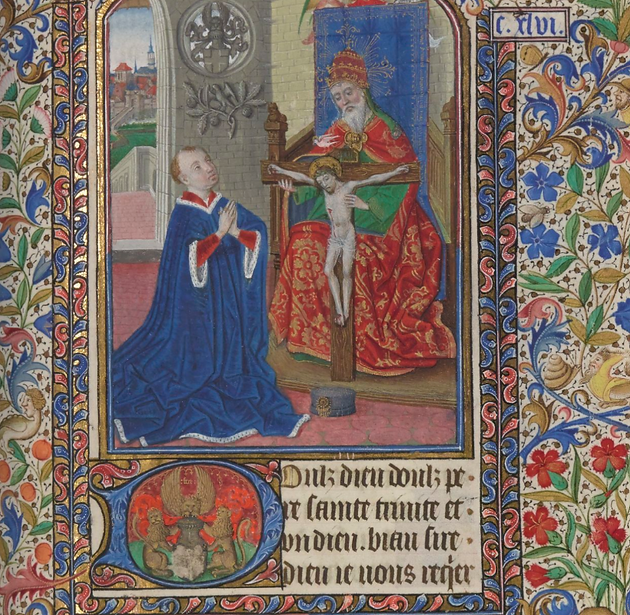 c. xlvi.
Doulz dieu doulz pe
re sainte trinite et
vn dieu. biau sire
dieu ie vous req̃er